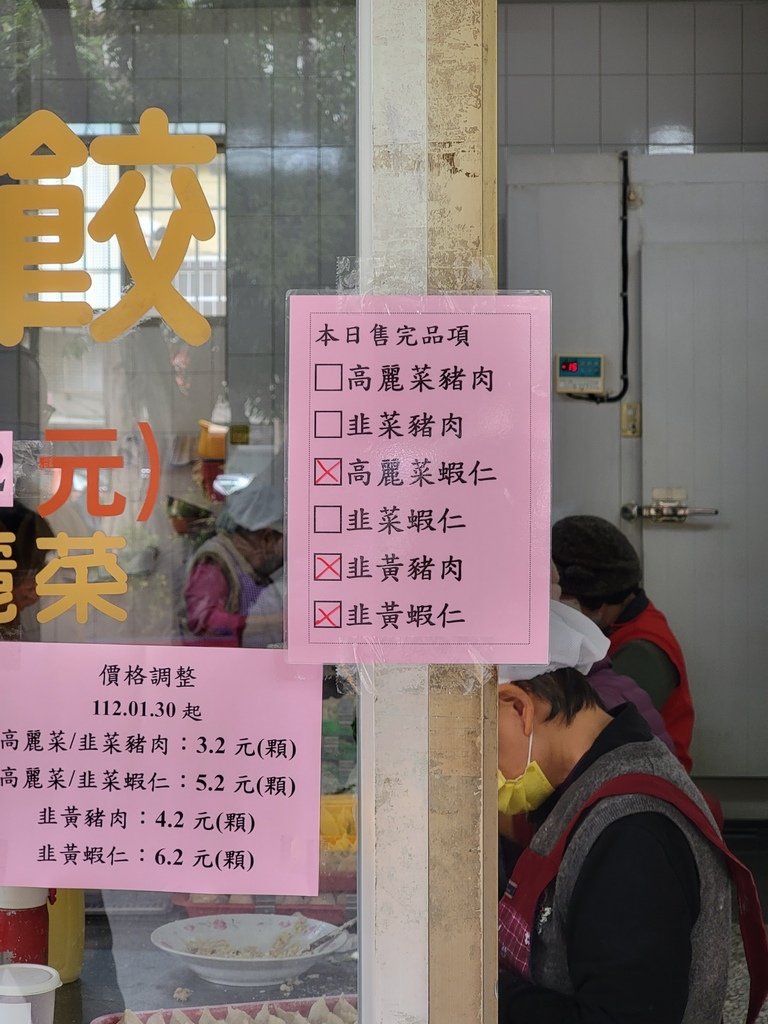 餃
元)
麗菜
本日售完品項
高麗菜豬肉
韭菜豬肉
高麗菜蝦仁
韭菜蝦仁
韭黃豬肉
韭黃蝦仁
價格調整
112.01.30 起
高麗菜/韭菜豬肉：3.2 元(顆)
高麗菜/韭菜蝦仁：5.2 元(顆)
韭黃豬肉：4.2 元(顆)
韭黃蝦仁：6.2 元(顆)